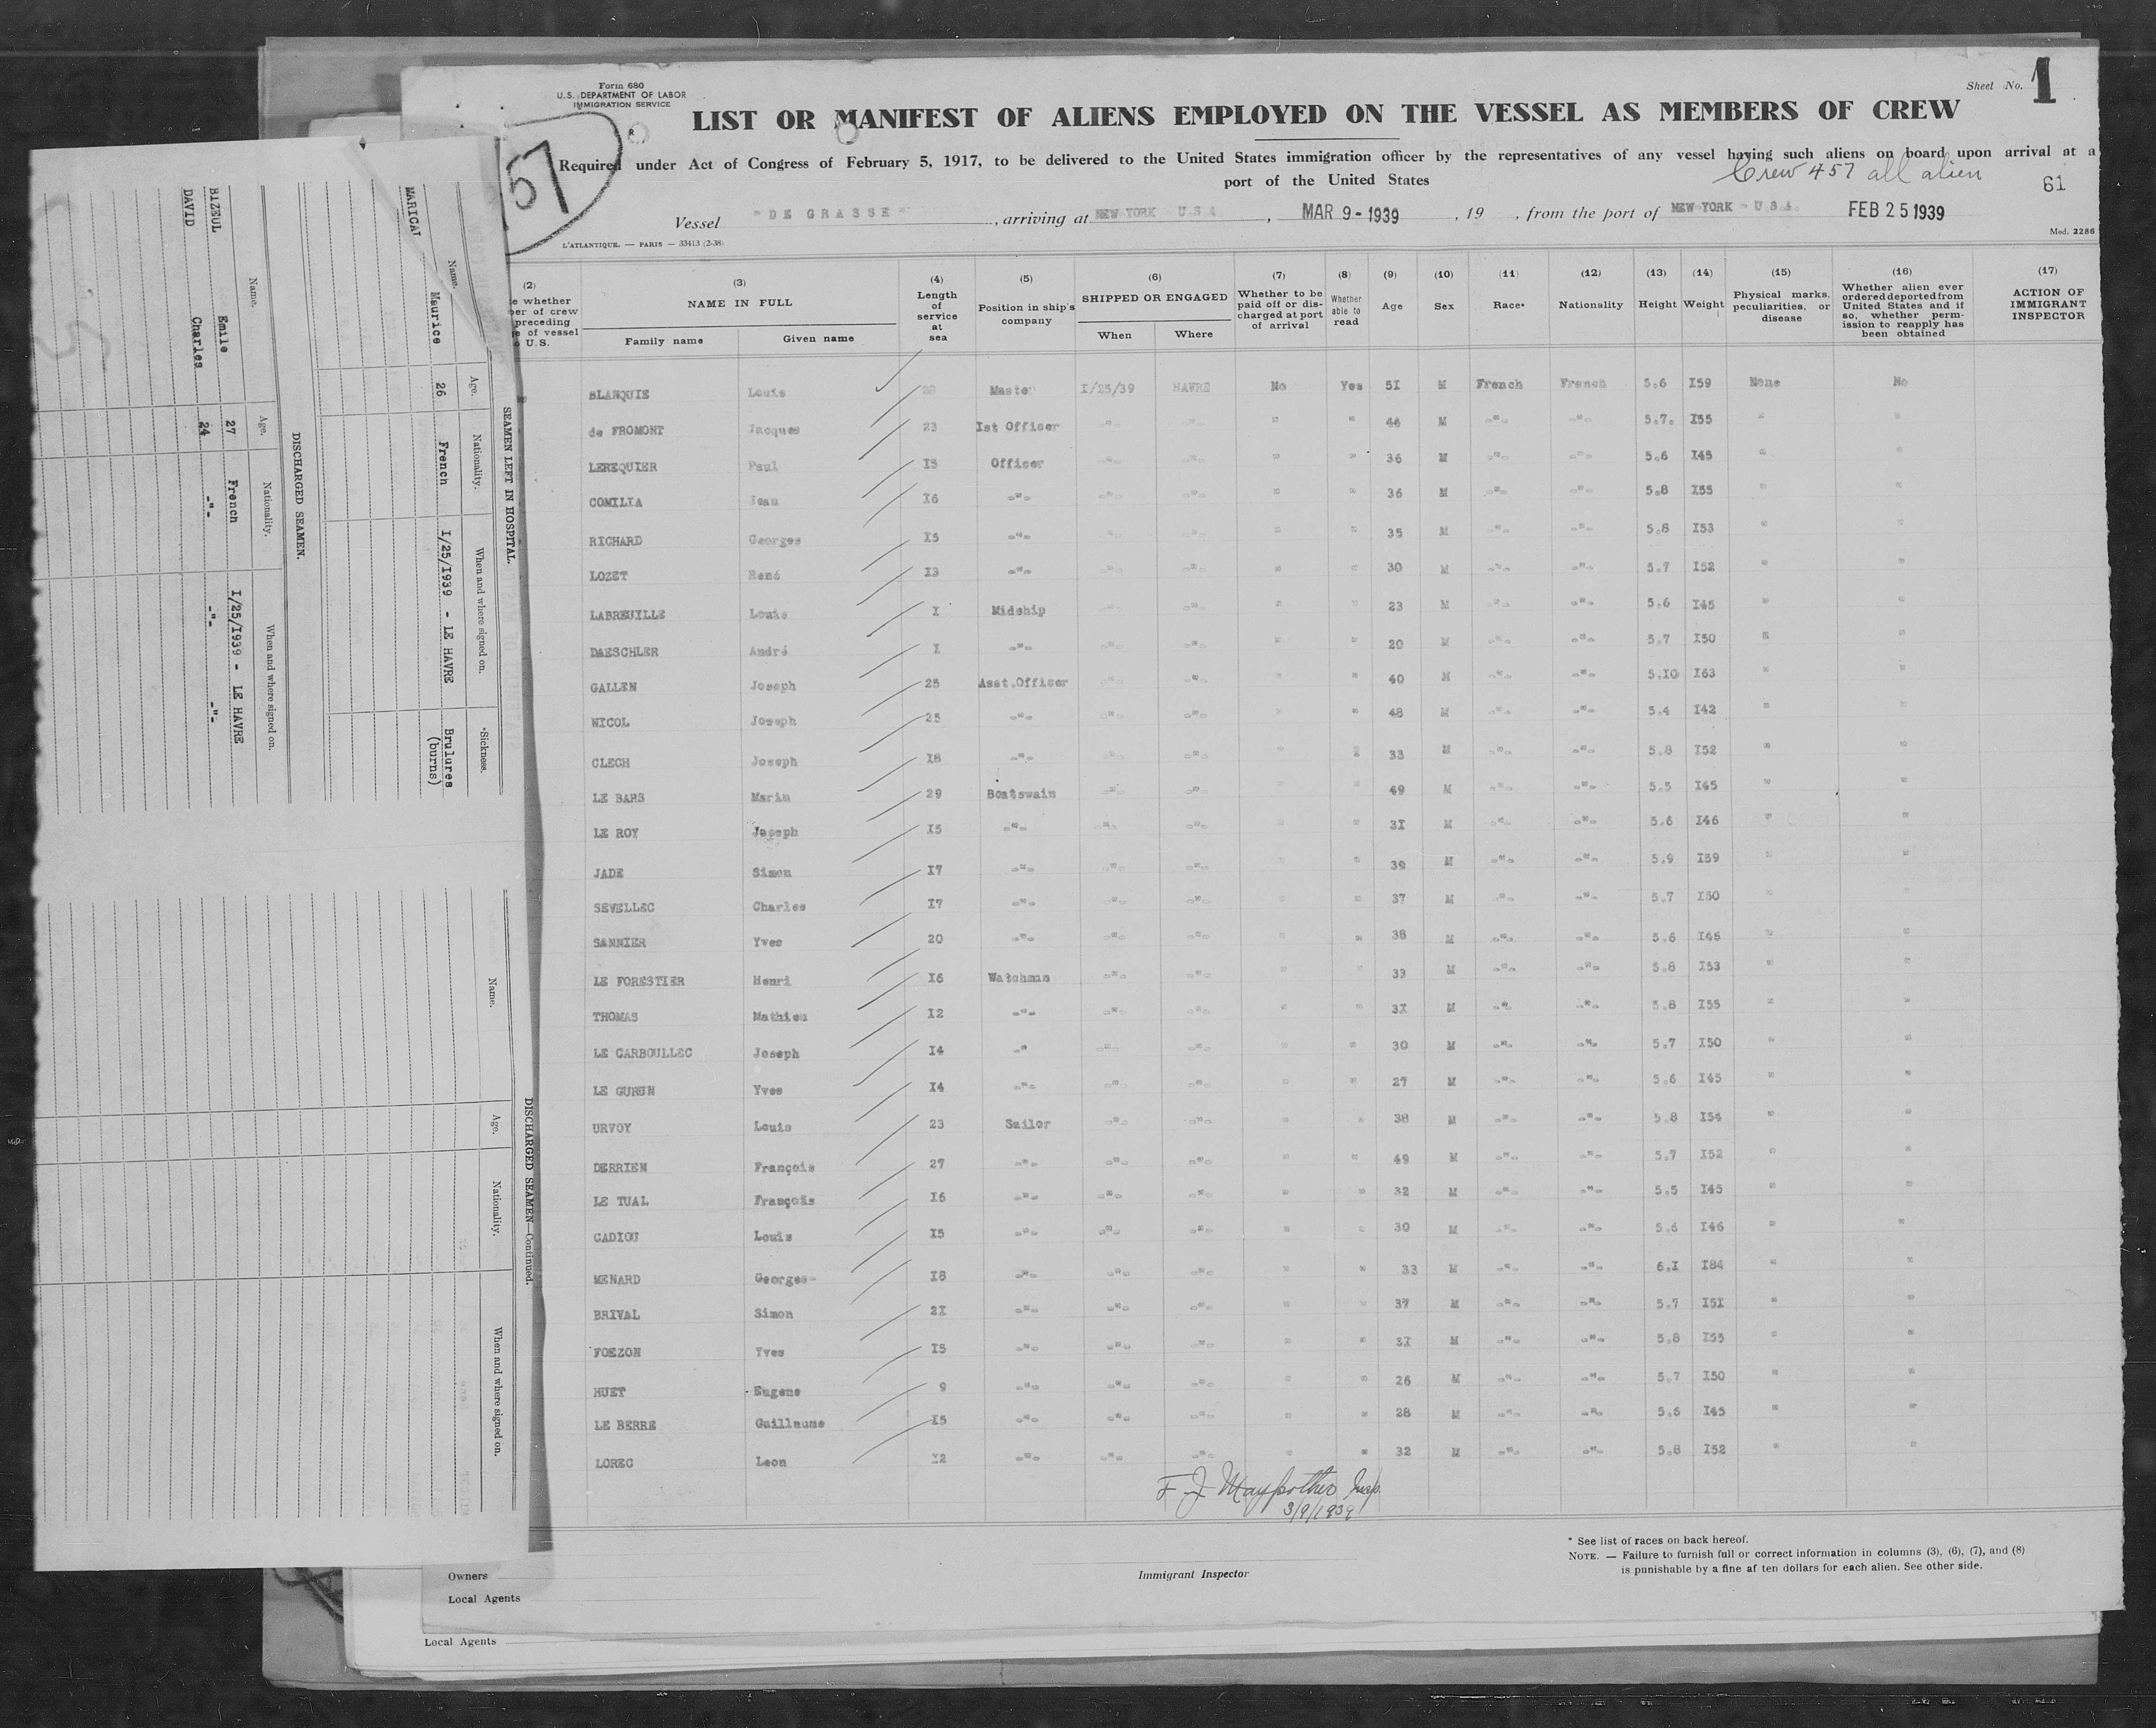 Form 680
U.S. DEPARTMENT OF LABOR
IMMIGRATION SERVICE
Sheet No. 1
LIST OR MANIFEST OF ALIENS EMPLOYED ON THE VESSEL AS MEMBERS OF CREW
57
Required under Act of Congress of February 5, 1917, to be delivered to the United States immigration officer by the representatives of any vessel having such aliens on board upon arrival at a
port of the United States
Crew 457 all alien
61
Vessel "DE GRASSE", arriving at NEW-YORK U S A, MAR 9-1939, 19 , from the port of NEW-YORK - U S A. FEB 25 1939
L'ATLANTIQUE. — PARIS — 33413 (2-38)
Mod. 2286
(2) (3) (4) (5) (6) (7) (8) (9) (10) (11) (12) (13) (14) (15) (16) (17)
whether
of crew
preceding
of vessel
U.S.
NAME IN FULL
Family name Given name
Length of service at sea
Position in ship's company
SHIPPED OR ENGAGED
When Where
Whether to be paid off or discharged at port of arrival
Whether able to read
Age Sex Race* Nationality Height Weight
Physical marks, peculiarities, or disease
Whether alien ever ordered deported from United States and if so, whether permission to reapply has been obtained
ACTION OF IMMIGRANT INSPECTOR
BLANQUIS Louis Master I/25/39 HAVRE No Yes 5I M French French 5.6 I59 None No
de FROMONT Jacques 23 Ist Officer " " " " 44 M -"- -"- 5.7. I55 " "
LEREQUIER Paul I5 Officer -"- -"- " " 36 M -"- -"- 5.6 I45 " "
COMILIA Jean I6 -"- -"- -"- " " 36 M -"- -"- 5.8 I55 " "
RICHARD Georges I5 -"- -"- -"- " " 35 M -"- -"- 5.8 I53 " "
LOZET René I3 -"- -"- -"- " " 30 M -"- -"- 5.7 I52 " "
LABREUILLE Louis I Midship -"- -"- " " 23 M -"- -"- 5.6 I45 " "
DAESCHLER André I -"- -"- -"- " " 20 M -"- -"- 5.7 I50 " "
GALLEN Joseph 25 Asst.Officer -"- -"- " " 40 M -"- -"- 5.I0 I63 " "
NICOL Joseph 25 -"- -"- -"- " " 48 M -"- -"- 5.4 I42 " "
CLECH Joseph I8 -"- -"- -"- " " 33 M -"- -"- 5.8 I52 " "
LE BARS Marin 29 Boatswain -"- -"- " " 49 M -"- -"- 5.5 I45 " "
LE ROY Joseph I5 -"- -"- -"- " " 3I M -"- -"- 5.6 I46 " "
JADE Simon I7 -"- -"- -"- " " 39 M -"- -"- 5.9 I59 " "
SEVELLEC Charles I7 -"- -"- -"- " " 37 M -"- -"- 5.7 I50 " "
SANNIER Yves 20 -"- -"- -"- " " 38 M -"- -"- 5.6 I46 " "
LE FORESTIER Henri I6 Watchman -"- -"- " " 33 M -"- -"- 5.8 I53 " "
THOMAS Mathieu I2 -"- -"- -"- " " 3I M -"- -"- 5.8 I55 " "
LE CARBOULLEC Joseph I4 -" -"- -"- " " 30 M -"- -"- 5.7 I50 " "
LE GURUN Yves I4 -"- -"- -"- " " 27 M -"- -"- 5.6 I45 " "
URVOY Louis 23 Sailor -"- -"- " " 38 M -"- -"- 5.8 I54 " "
DERRIEN François 27 -"- -"- -"- " " 49 M -"- -"- 5.7 I52 " "
LE TUAL François I6 -"- -"- -"- " " 32 M -"- -"- 5.5 I45 " "
CADIOU Louis I5 -"- -"- -"- " " 30 M -"- -"- 5.6 I46 " "
MENARD Georges I8 -"- -"- -"- " " 33 M -"- -"- 6.I I84 " "
BRIVAL Simon 2I -"- -"- -"- " " 37 M -"- -"- 5.7 I5I " "
FOEZON Yves I5 -"- -"- -"- " " 3I M -"- -"- 5.8 I55 " "
HUET Eugene 9 -"- -"- -"- " " 26 M -"- -"- 5.7 I50 " "
LE BERRE Guillaume I5 -"- -"- -"- " " 28 M -"- -"- 5.6 I45 " "
LOREC Leon -"- -"- -"- " " 32 M -"- -"- 5.8 I52 " "
F J Maypother Insp.
3/9/1939
Immigrant Inspector
* See list of races on back hereof.
NOTE. — Failure to furnish full or correct information in columns (3), (6), (7), and (8)
is punishable by a fine af ten dollars for each alien. See other side.
Owners
Local Agents
Local Agents
SEAMEN LEFT IN HOSPITAL.
Name. Age. Nationality. When and where signed on. *Sickness.
Maurice 26 French I/25/I939 - LE HAVRE Brulures
(burns)
DISCHARGED SEAMEN.
Name. Age. Nationality. When and where signed on.
BIZEUL Emile 27 French I/25/I939 - LE HAVRE
DAVID Charles 24 -"- -"- -"-
DISCHARGED SEAMEN—Continued.
Name. Age. Nationality. When and where signed on.